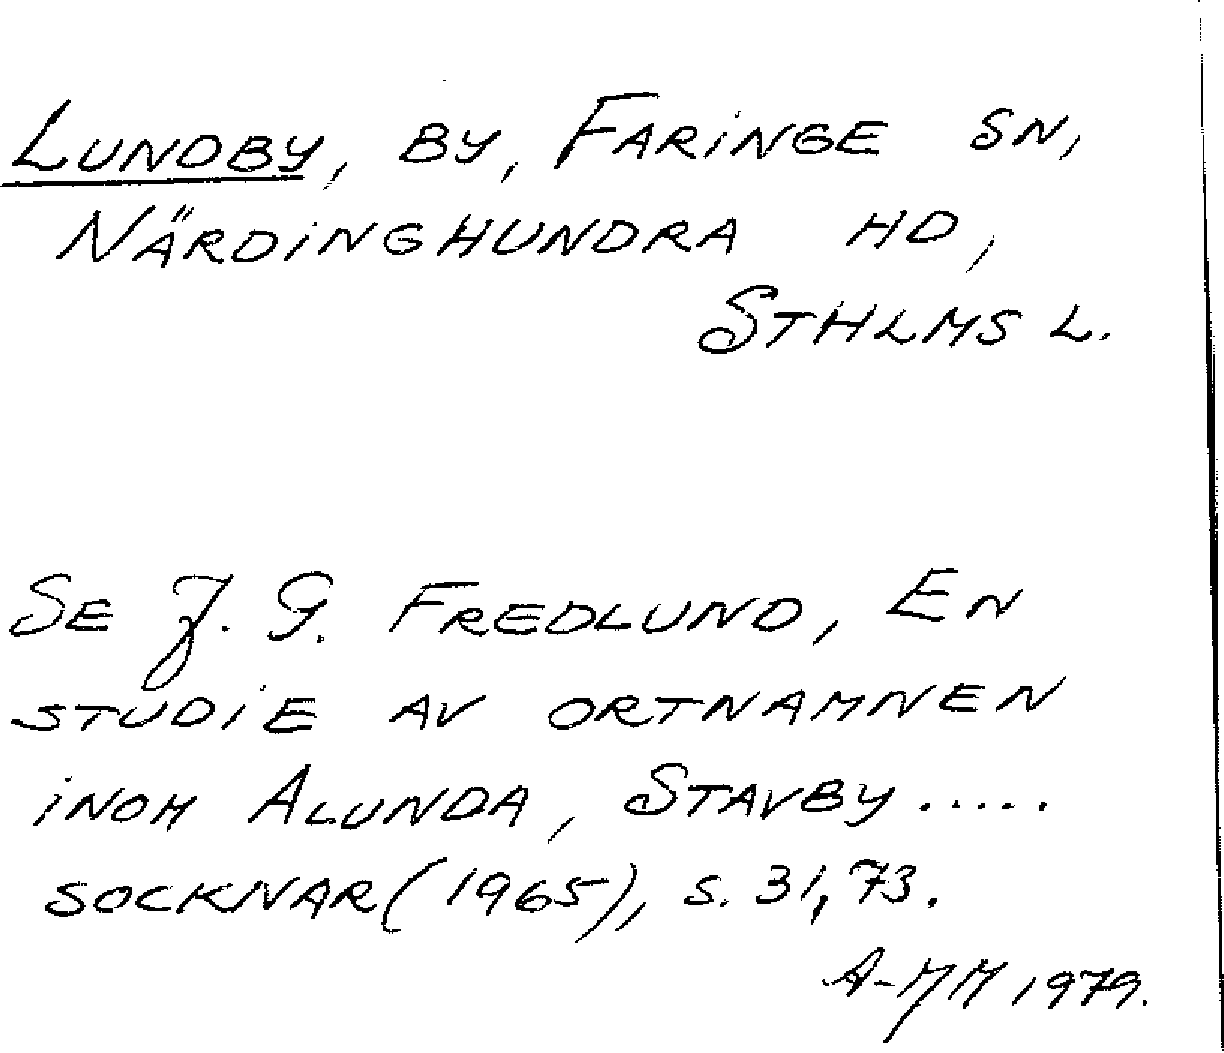 LUNDBY, BY, FARINGE SN,
NÄRDINGHUNDRA HD,
STHLMS L.
SE J. G. FREDLUND, EN
STUDIE AV ORTNAMNEN
INOM ALUNDA, STAVBY .....
SOCKNAR (1965), S. 31, 73.
A-MM 1979.